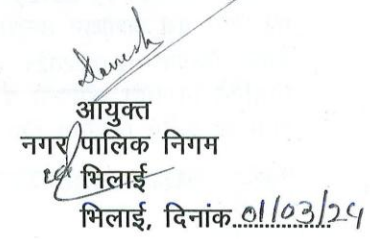 आयुक्त
नगर पालिक निगम
भिलाई
भिलाई, दिनांक..01/03/24